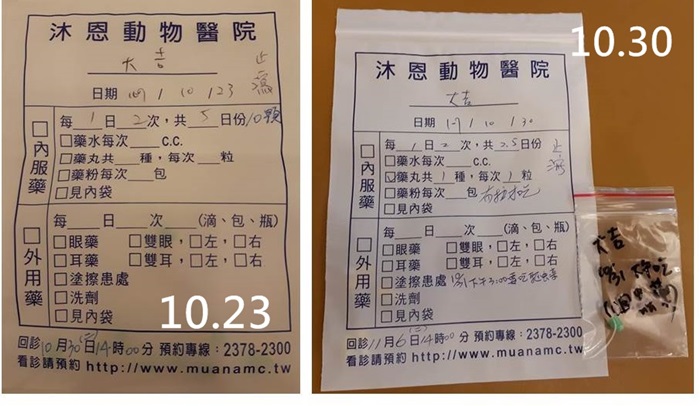 沐恩動物醫院
大吉
止瀉
日期 107 / 10 / 23
每 1 日 2 次，共 5 日份 10顆
□內服藥
□藥水每次 c.c.
□藥丸共 種，每次 粒
□藥粉每次 包
□見內袋
每 日 次 (滴、包、瓶)
□外用藥
□眼藥 □雙眼，□左，□右
□耳藥 □雙耳，□左，□右
□塗擦患處
□洗劑
□見內袋
10.23
回診10月30日(二)14時00分 預約專線：2378-2300
看診請預約 http://www.muanamc.tw
10.30
沐恩動物醫院
大吉
日期 107 / 10 / 30
每 1 日 2 次，共 2.5 日份
止瀉
□內服藥
□藥水每次 c.c.
☑藥丸共 1 種，每次 1 粒
□藥粉每次 包 有拉才吃
□見內袋
每 日 次 (滴、包、瓶)
□外用藥
□眼藥 □雙眼，□左，□右
□耳藥 □雙耳，□左，□右
□塗擦患處
□洗劑
□見內袋
回診11月6日(二)14時00分 預約專線：2378-2300
看診請預約 http://www.muanamc.tw
大吉
10/31